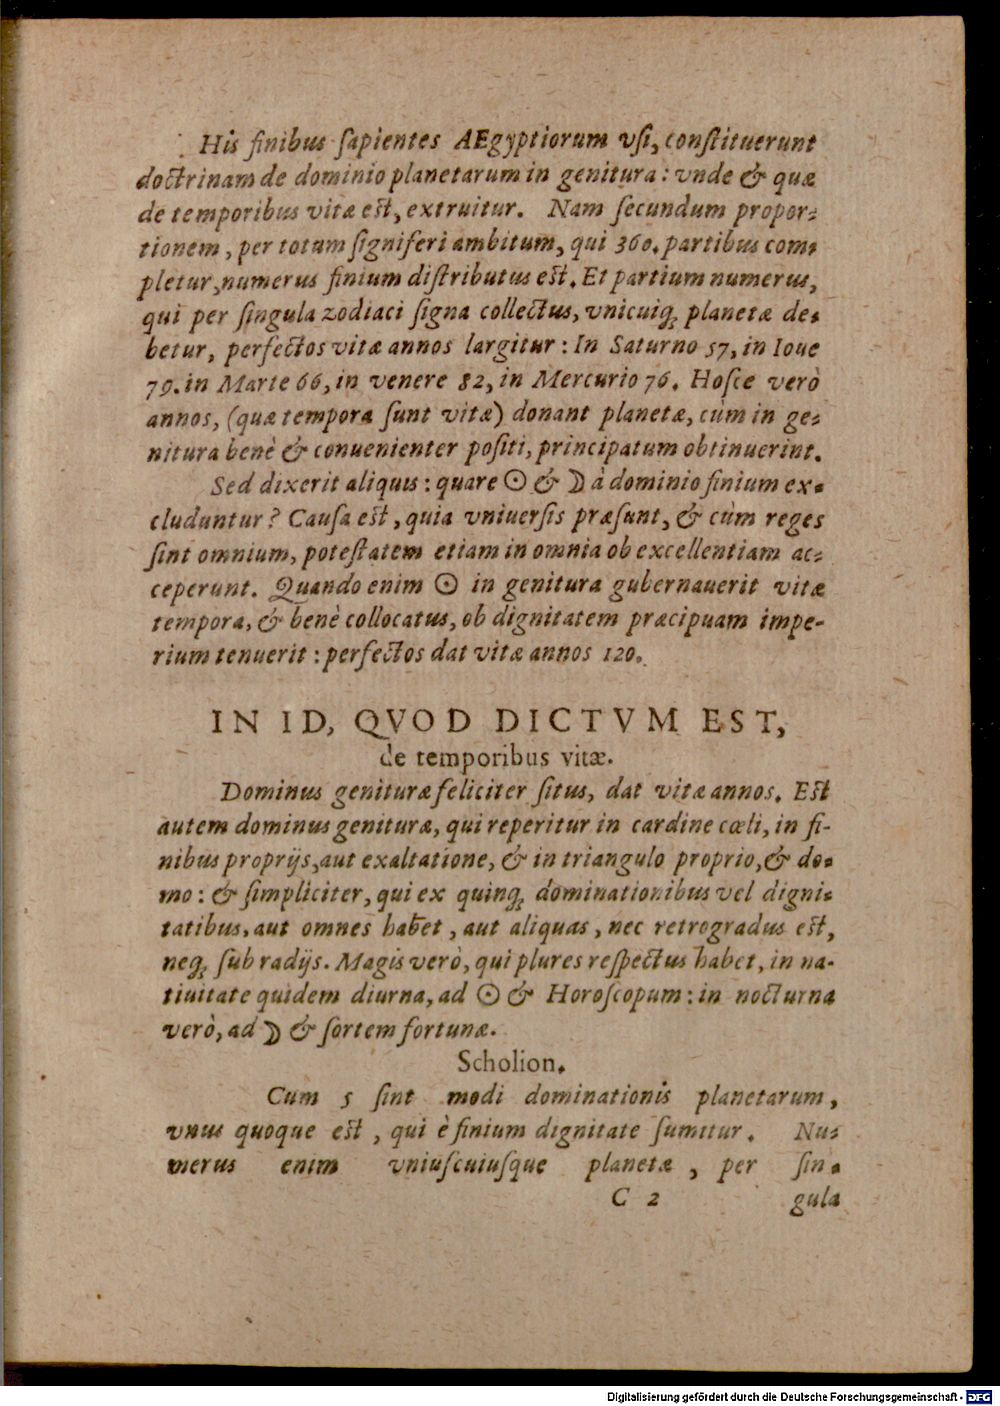 His finibus ſapientes AEgyptiorum vſi, conſtituerunt
doctrinam de dominio planetarum in genitura: vnde & quæ
de temporibus vitæ est, extruitur. Nam ſecundum propor-
tionem, per totum ſigniferi ambitum, qui 360. partibus com-
pletur, numerus finium diſtributus est. Et partium numerus,
qui per ſingula zodiaci ſigna collectus, vnicuiq; planetæ de-
betur, perfectos vitæ annos largitur: In Saturno 57, in Ioue
79. in Marte 66, in venere 82, in Mercurio 76. Hoſce verò
annos, (quæ tempora ſunt vitæ) donant planetæ, cùm in ge-
nitura benè & conuenienter poſiti, principatum obtinuerint.
Sed dixerit aliquis: quare ☉ & ☽ à dominio finium ex-
cluduntur? Cauſa est, quia vniuerſis præſunt, & cùm reges
ſint omnium, poteſtatem etiam in omnia ob excellentiam ac-
ceperunt. Quando enim ☉ in genitura gubernauerit vitæ
tempora, & benè collocatus, ob dignitatem præcipuam impe-
rium tenuerit: perfectos dat vitæ annos 120.
IN ID, QVOD DICTVM EST,
de temporibus vitæ.
Dominus genituræ feliciter ſitus, dat vitæ annos. Est
autem dominus genituræ, qui reperitur in cardine cœli, in fi-
nibus proprijs, aut exaltatione, & in triangulo proprio, & do-
mo: & ſimpliciter, qui ex quinq; dominationibus vel digni-
tatibus, aut omnes habet, aut aliquas, nec retrogradus est,
neq; ſub radijs. Magis verò, qui plures reſpectus habet, in na-
tiuitate quidem diurna, ad ☉ & Horoſcopum: in nocturna
verò, ad ☽ & ſortem fortunæ.
Scholion.
Cum 5 ſint modi dominationis planetarum,
vnus quoque est, qui è finium dignitate ſumitur. Nu-
merus enim vniuſcuiuſque planetæ, per ſin-
C 2 gula
Digitalisierung gefördert durch die Deutsche Forschungsgemeinschaft - DFG